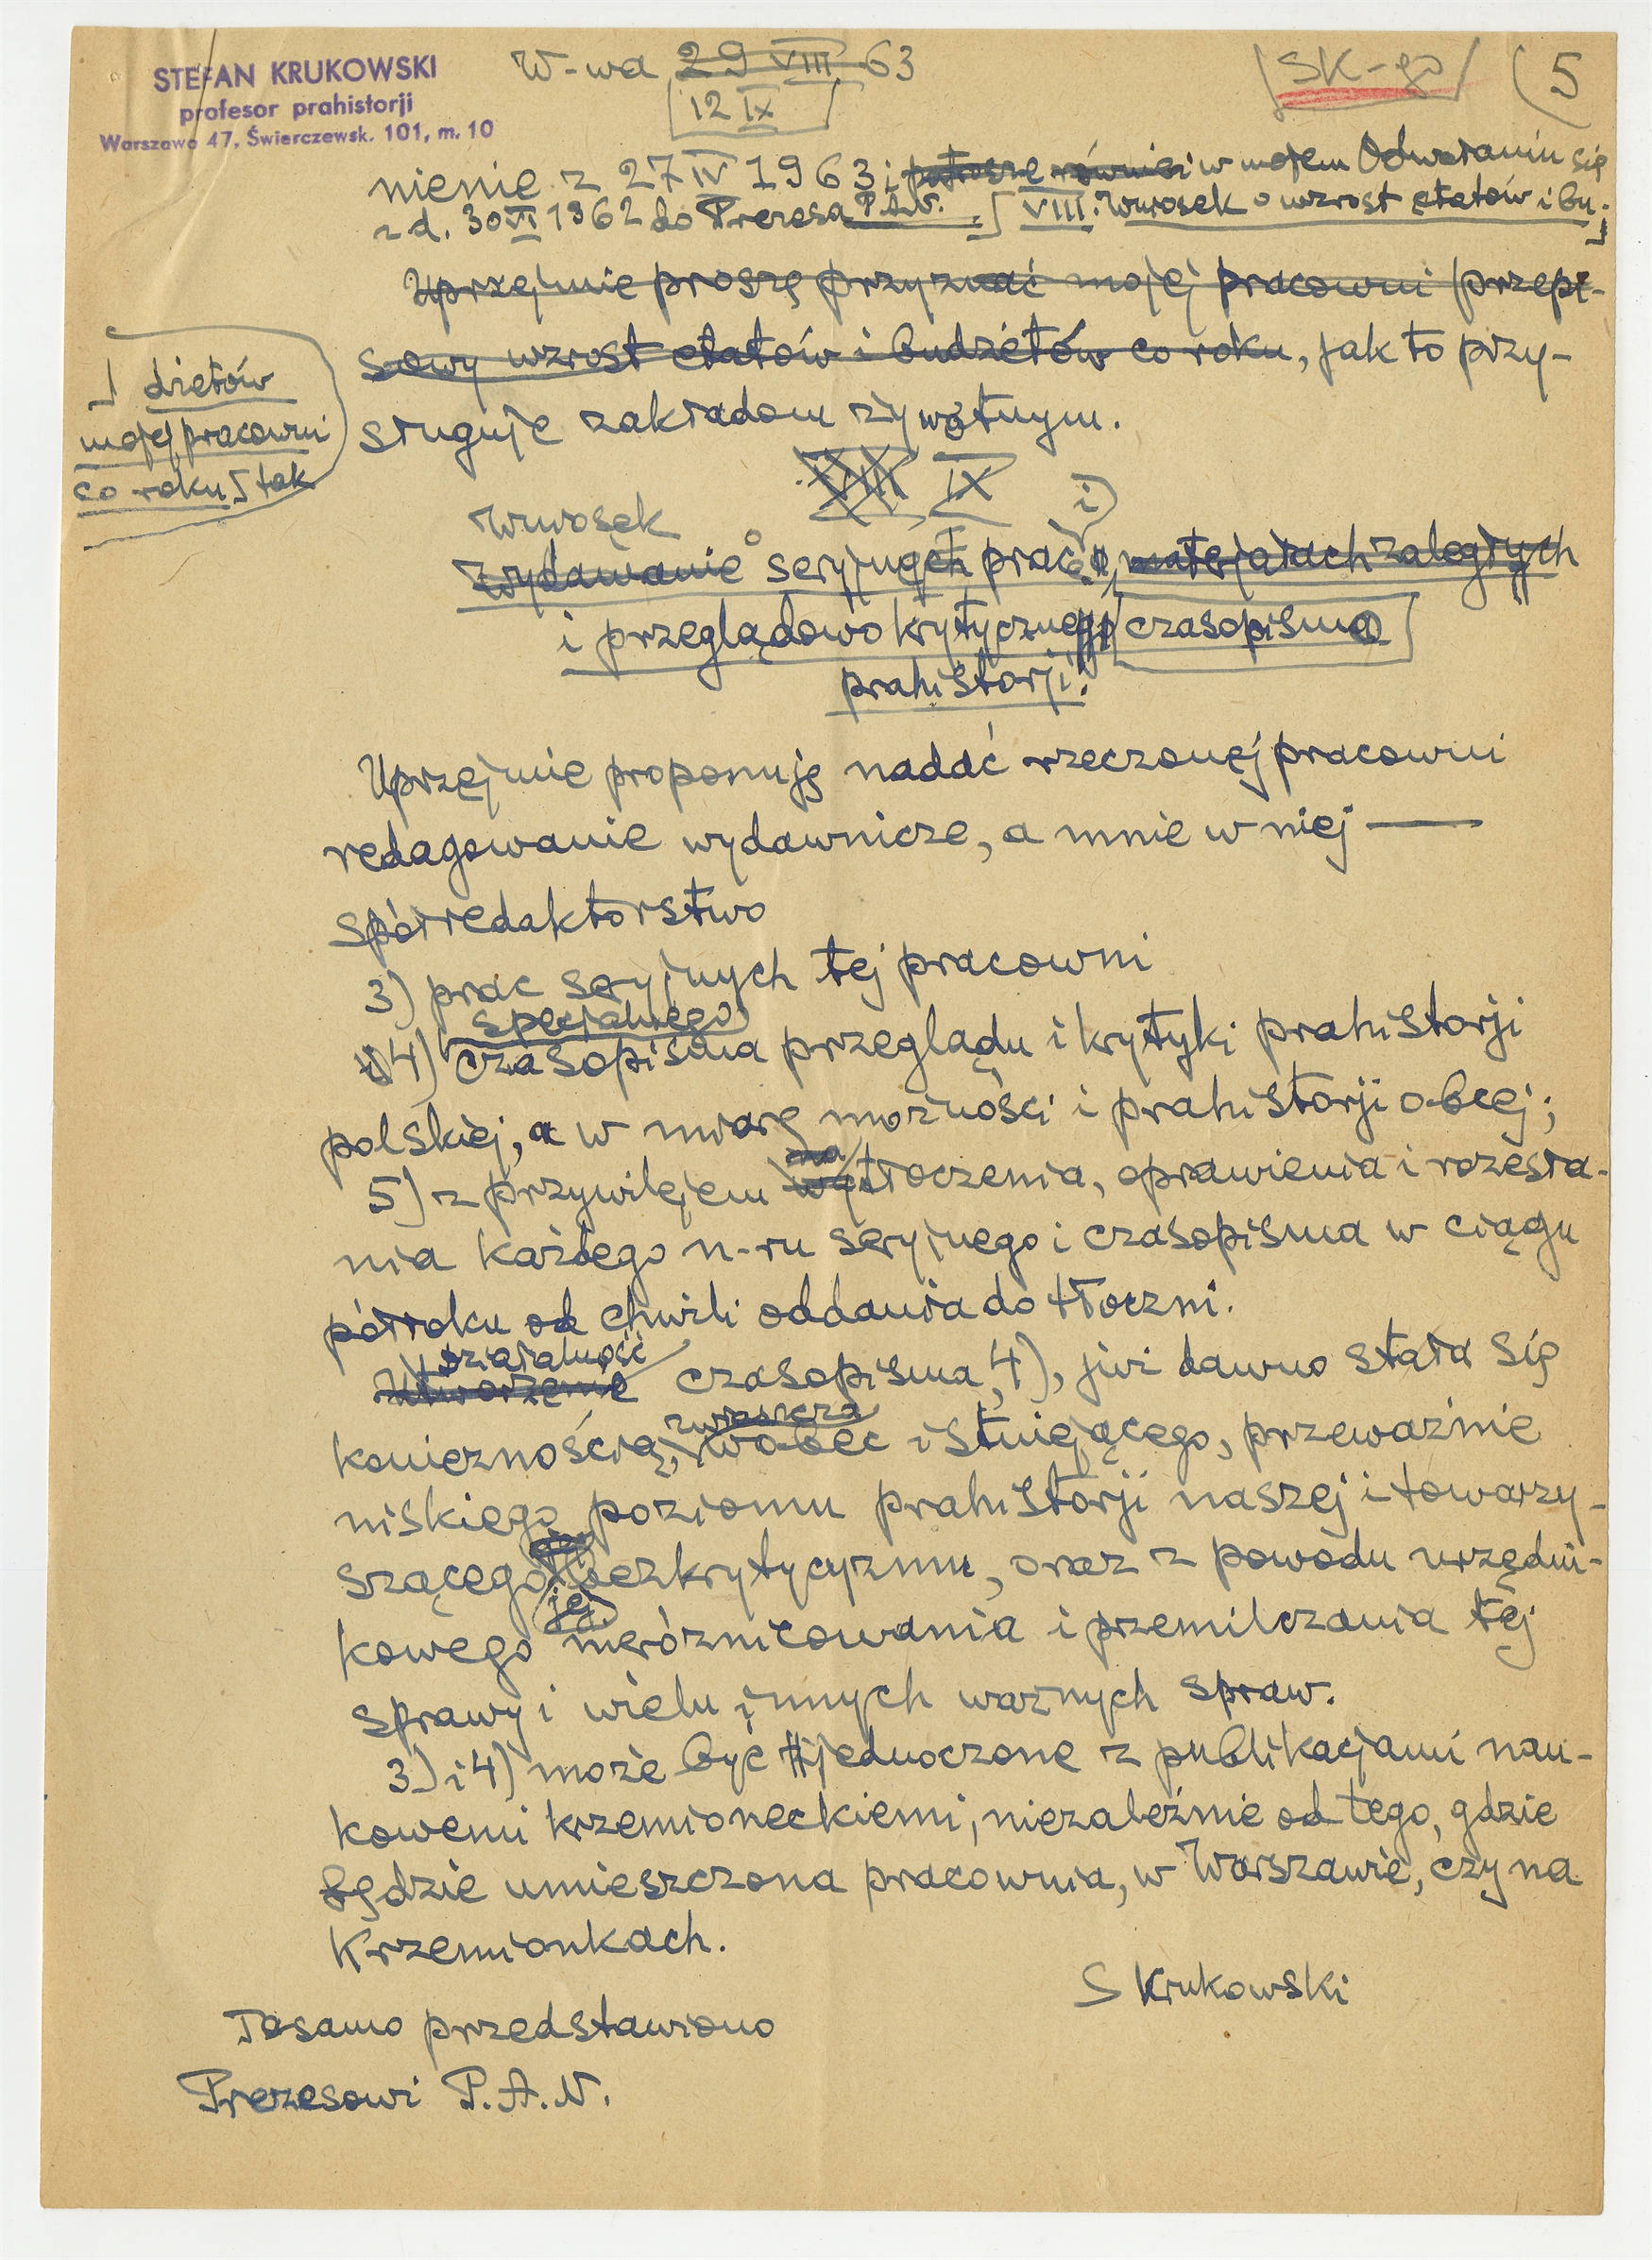 STEFAN KRUKOWSKI
profesor prahistorji
Warszawa 47, Świerczewsk. 101, m. 10
W-wa 29 VIII 63
12 IX
SK-go
5
nienie z 27 IV 1963 i również w mojem Odwołaniu się
z d. 30 VI 1962 do Prezesa P.A.N.] [VIII. Wniosek o wzrost etatów i bu-]
Uprzejmie proszę przyznać mojej pracowni przepi-
sowy wzrost etatów i budżetów co roku, jak to przy-
sługuje zakładom żywotnym.
[dżetów
mojej pracowni
co roku] tak
VIII IX
Wniosek i
Wydawanie o seryjnych prac, materjałach zaległych
i przeglądowokrytycznego czasopisma
prahistorji.
Uprzejmie proponuję nadać rzeczonej pracowni
redagowanie wydawnicze, a mnie w niej —
spółredaktorstwo
3) prac seryjnych tej pracowni
specjalnego
i 4) czasopisma przeglądu i krytyki prahistorji
polskiej, a w miarę możności i prahistorji obcej;
na
5) z przywilejem wytłoczenia, oprawienia i rozesła-
nia każdego n-ru seryjnego i czasopisma w ciągu
półroku od chwili oddania do tłoczni.
Działalność
Utworzenie czasopisma, 4), już dawno stała się
zwłaszcza
koniecznością, wobec istniejącego, przeważnie
niskiego poziomu prahistorji naszej i towarzy-
szącego jej bezkrytycyzmu, oraz z powodu urzędni-
kowego nieróżnicowania i przemilczania tej
sprawy i wielu innych ważnych spraw.
3) i 4) może być jednoczone z publikacjami nau-
kowemi krzemioneckiemi, niezależnie od tego, gdzie
będzie umieszczona pracownia, w Warszawie, czy na
Krzemionkach.
S Krukowski
Tosamo przedstawiono
Prezesowi P.A.N.